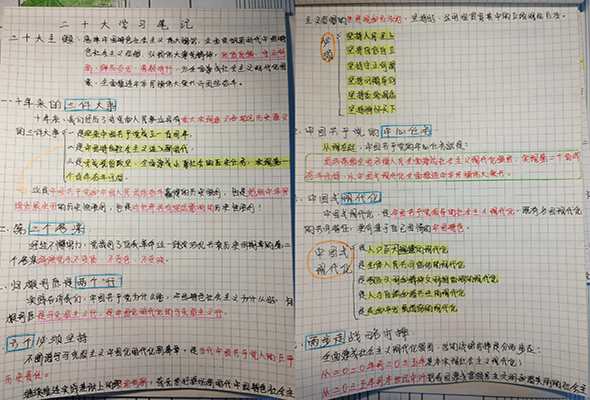 二十大学习笔记
二十大主题：高举中国特色社会主义伟大旗帜，全面贯彻新时代中国特
色社会主义思想，弘扬伟大建党精神，自信自强、守正创
新，踔厉奋发、勇毅前行，为全面建设社会主义现代化国
家、全面推进中华民族伟大复兴而团结奋斗。
一、十年来的三件大事
十年来，我们经历了对党和人民事业具有重大现实意义和深远历史意义
的三件大事：一是迎来中国共产党成立一百周年，
二是中国特色社会主义进入新时代，
三是完成脱贫攻坚、全面建成小康社会的历史任务，实现第一
个百年奋斗目标。
这是中国共产党和中国人民团结奋斗赢得的历史性胜利，是彪炳中华民
族发展史册的历史性胜利，也是对世界具有深远影响的历史性胜利！
二、第三个答案
经过不懈努力，党找到了自我革命这一跳出治乱兴衰历史周期率的第二
个答案，确保党永远不变质、不变色、不变味。
三、归根到底是两个"行"
实践告诉我们，中国共产党为什么能，中国特色社会主义为什么好，归
根到底是马克思主义行，是中国化时代化的马克思主义行。
六个必须坚持
不断谱写马克思主义中国化时代化新篇章，是当代中国共产党人的庄严
历史责任。
继续推进实践基础上的理论创新，首先要把握好新时代中国特色社会主
义思想的世界观和方法论，坚持好、运用好贯穿其中的立场观点方法。
必须
坚持人民至上
坚持自信自立
坚持守正创新
坚持问题导向
坚持系统观念
坚持胸怀天下
中国共产党的中心任务
从现在起，中国共产党的中心任务就是：
团结带领全国各族人民全面建成社会主义现代化强国、实现第二个百年
奋斗目标，以中国式现代化全面推进中华民族伟大复兴。
中国式现代化
中国式现代化，是中国共产党领导的社会主义现代化，既有各国现代化
的共同特征，更有基于自己国情的中国特色。
中国式
现代化
是人口规模巨大的现代化
是全体人民共同富裕的现代化
是物质文明和精神文明相协调的现代化
是人与自然和谐共生的现代化
是走和平发展道路的现代化
两步走战略安排
全面建成社会主义现代化强国，总的战略安排是分两步走：
从二〇二〇年到二〇三五年基本实现社会主义现代化；
从二〇三五年到本世纪中叶把我国建成富强民主文明和谐美丽的社会主